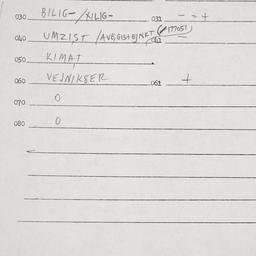 030 BILIG-/XILIG- 031 - - +
040 UMZIST /AVEGISTEJNKT (177051) 041 -
050 KIMAT
060 VEJNIKSER 061 +
070 0
080 0